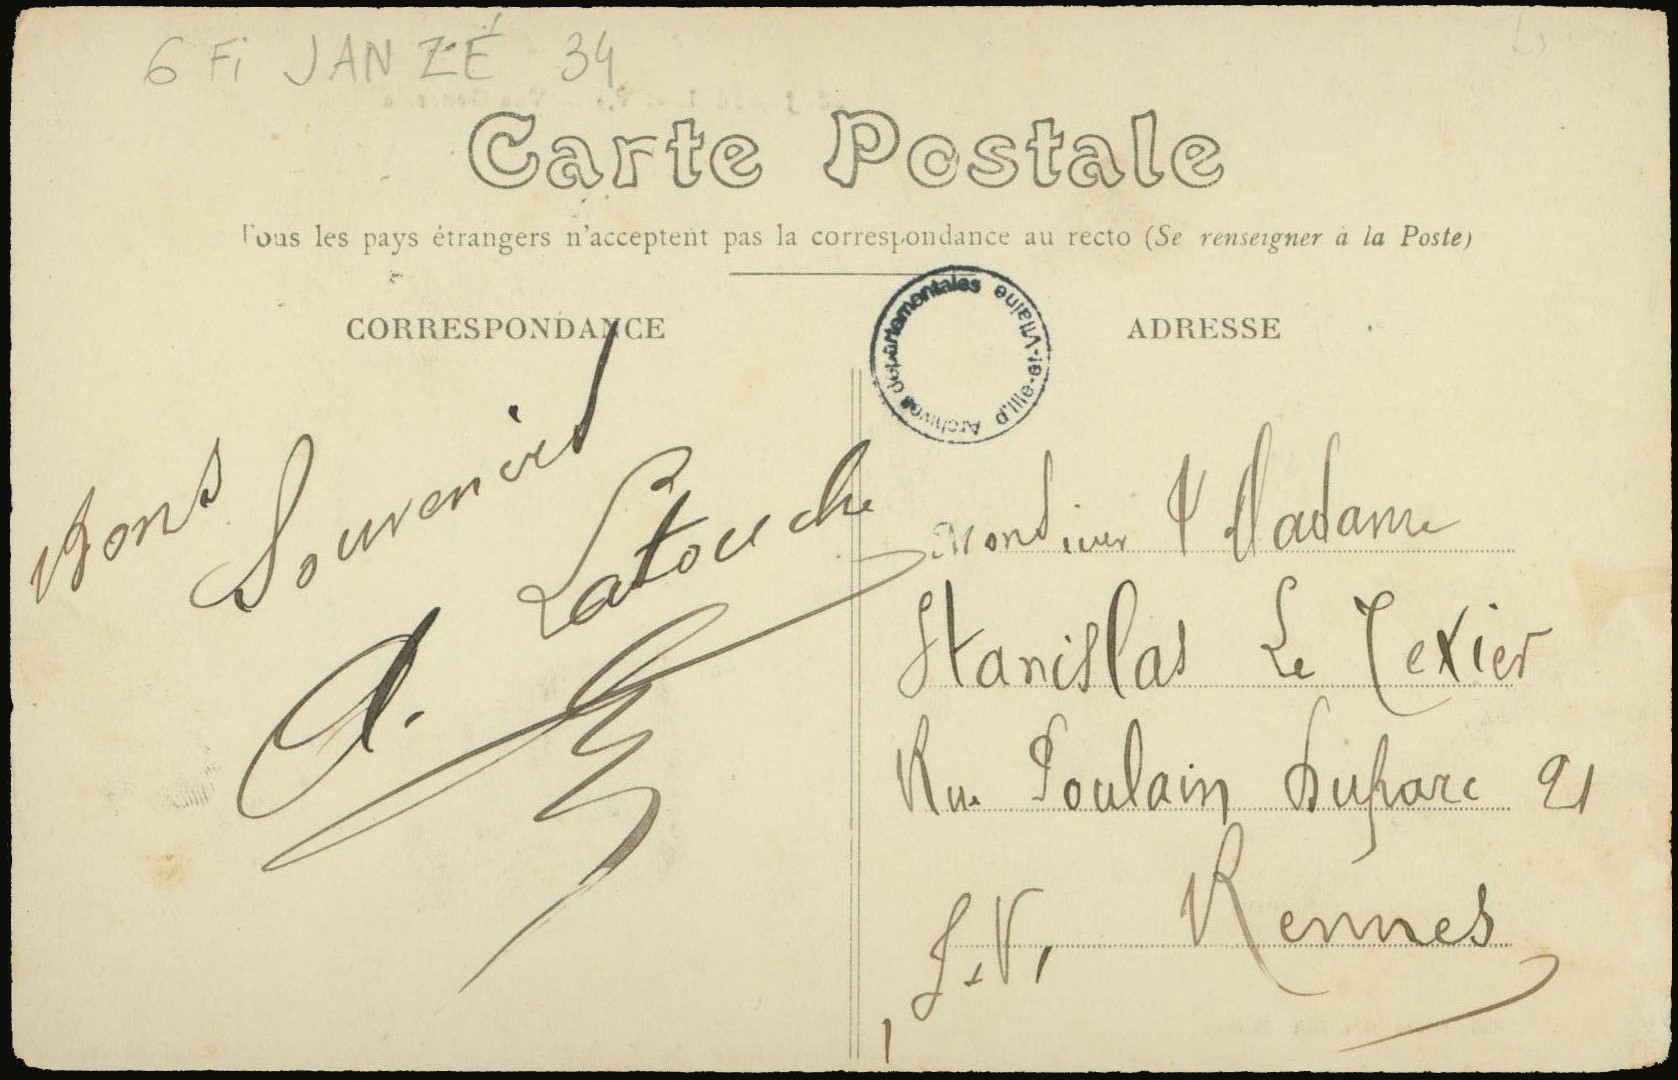 6 Fi JANZÉ 34
Carte Postale
Tous les pays étrangers n'acceptent pas la correspondance au recto (Se renseigner à la Poste)
CORRESPONDANCE
ADRESSE
Archives départementales
d'Ille-et-Vilaine
Bons
Souvenirs
Latouche
A.
Monsieur & Madame
Stanislas Le Texier
Rue Poulain Duparc 21
Rennes
I.-V,